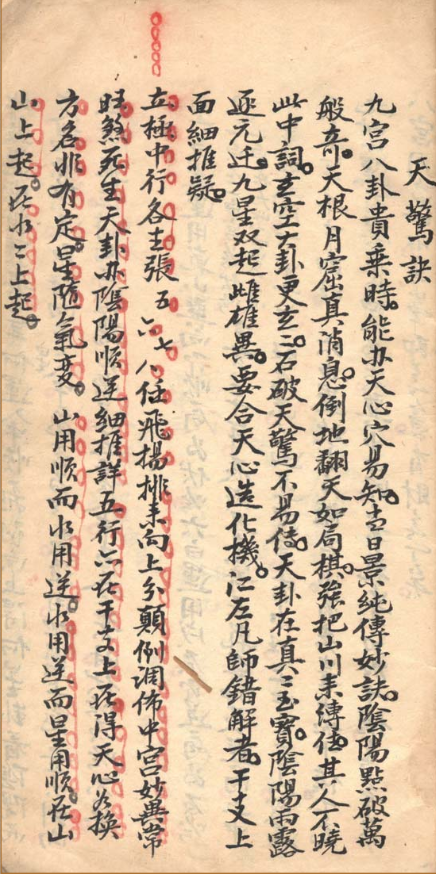 天驚訣
九宮八卦貴乘時。能办天心穴易知。当日景純傳妙訣。陰陽點破萬
般奇。天根月窟真消息。倒地翻天如局棋。強把山川未傳休。其人不曉
此中詞。玄空大卦更玄〻。石破天驚不易傳。天卦在真〻玉寶。陰陽雨露
逐元迁。九星双起雌雄異。要合天心造化機。江左凡師錯解者。干支上
面細推疑。
立極中行各主張 五六七八任飛揚排来向上分顛倒调佈中宮妙異常
旺煞死生天卦办陰陽順逆細推詳五行六在干支上在得天心名換
方名非有定。星隨氣变。山用順而水用逆。水用逆而星用順。在山
山上起。在水〻上起。